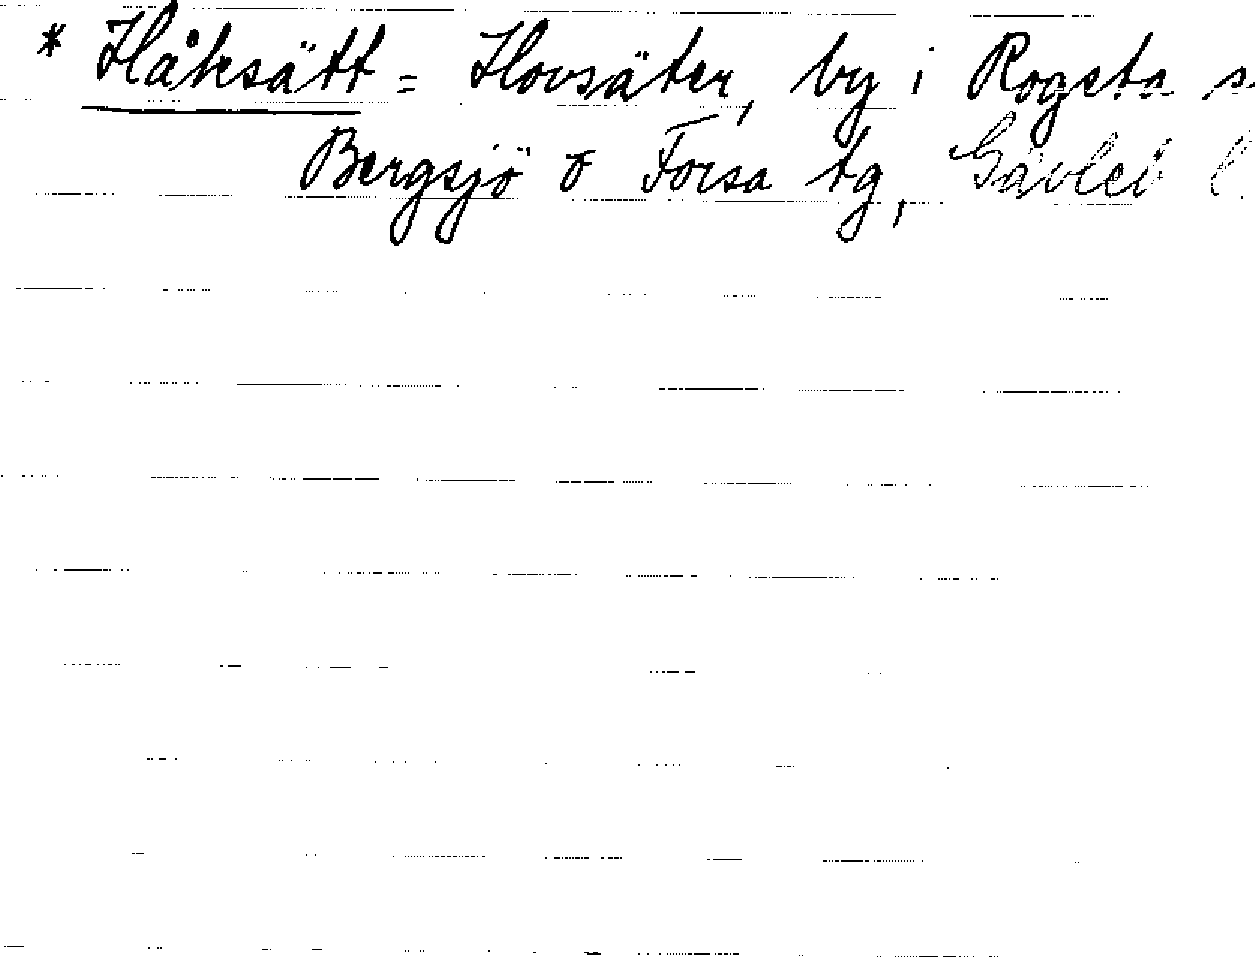 * Håksätt = Hovsäter, by i Rogsta s
Bergsjö o Forsa tg, Gävleb l.